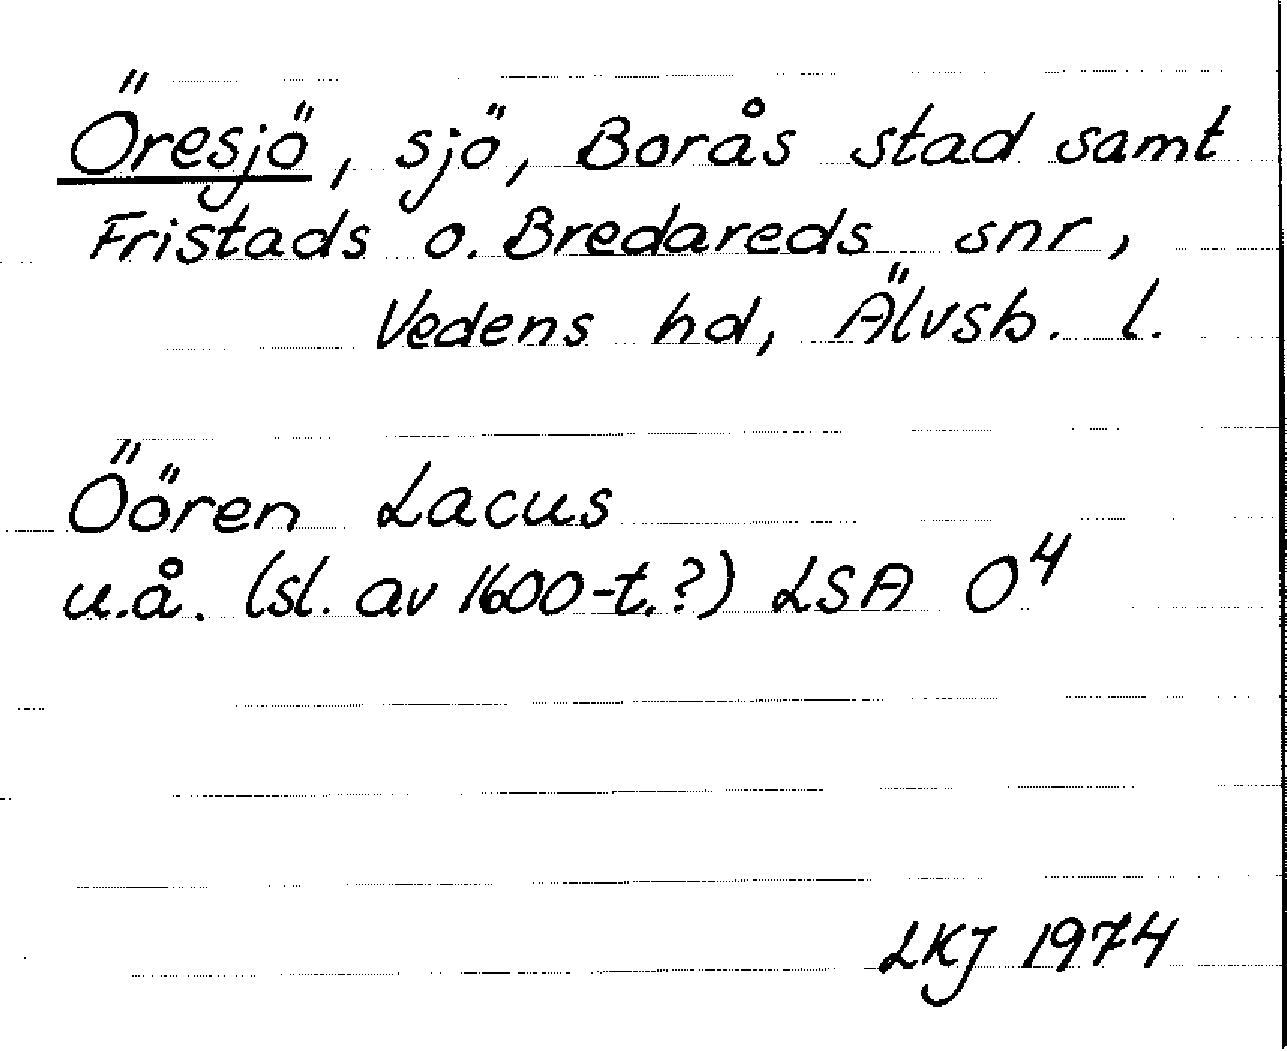 Öresjö, sjö, Borås stad samt
Fristads o. Bredareds snr,
Vedens hd, Älvsb. l.
Öören Lacus
u.å. (sl. av 1600-t.?) LSA O⁴
LKJ 1974